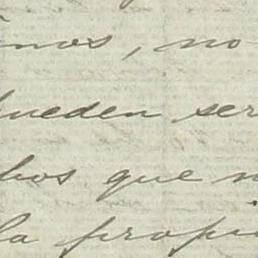 nos, no
pueden ser
bos que n
la propi